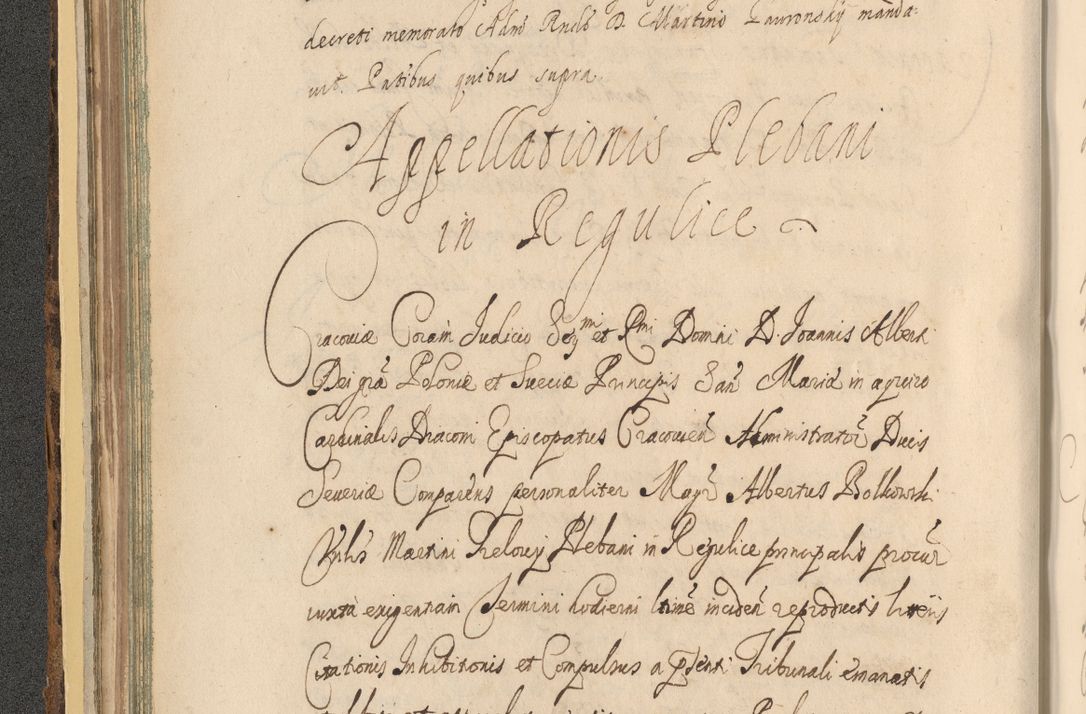 decreti memorato Adm Rndo D. Martino Pauronskÿ manda-
vit. Patibus quibus supra.
Appellationis Plebani
in Regulice
Cracoviæ Coram Judicio Serᵐⁱ et Rᵐⁱ Domini D. Joannis Alberti
Dei grã Poloniæ et Sueciæ Principis San̄ Mariæ in aqruro
Cardinalis Diaconi Episcopatus Cracovien̄ Administrator̄ Ducis
Severiæ Comparens personaliter Magr̄ Albertus Bolkowski
Martini Plebani in Regulice principalis procur̄
iuxta exigentiam Termini hodierni ltimē inciden̄ reproductis litteris
Citationis Inhibitionis et Compulsus a pſenti Tribunali emanatis